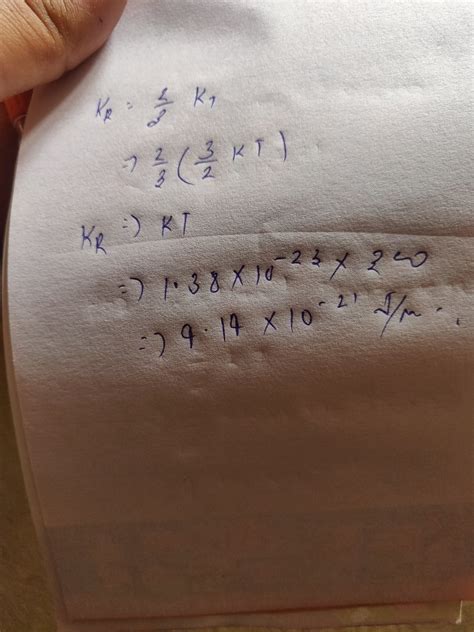 K_R = 2/3 K_T
=> 2/3 (3/2 KT)
K_R => KT
=> 1.38 × 10^-23 ×
=> 4.14 × 10^-21 J/m.